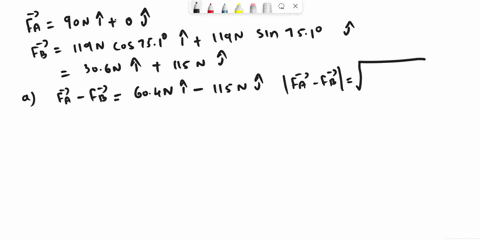 F⃗A = 90N î + 0 ĵ
F⃗B = 119N cos 75.1° î + 119N sin 75.1° ĵ
= 30.6N î + 115N ĵ
a) F⃗A - F⃗B = 60.4N î - 115N ĵ |F⃗A - F⃗B| = √